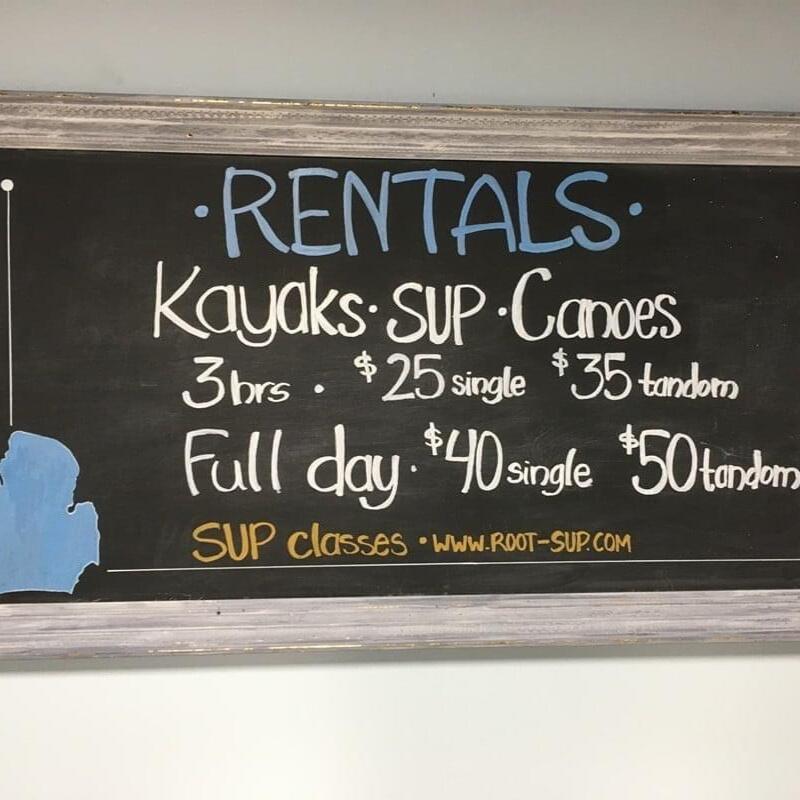 ·RENTALS·
Kayaks · SUP · Canoes
3hrs · $25 single $35 tandom
Full day · $40 single $50 tandom
SUP classes · WWW.ROOT-SUP.COM